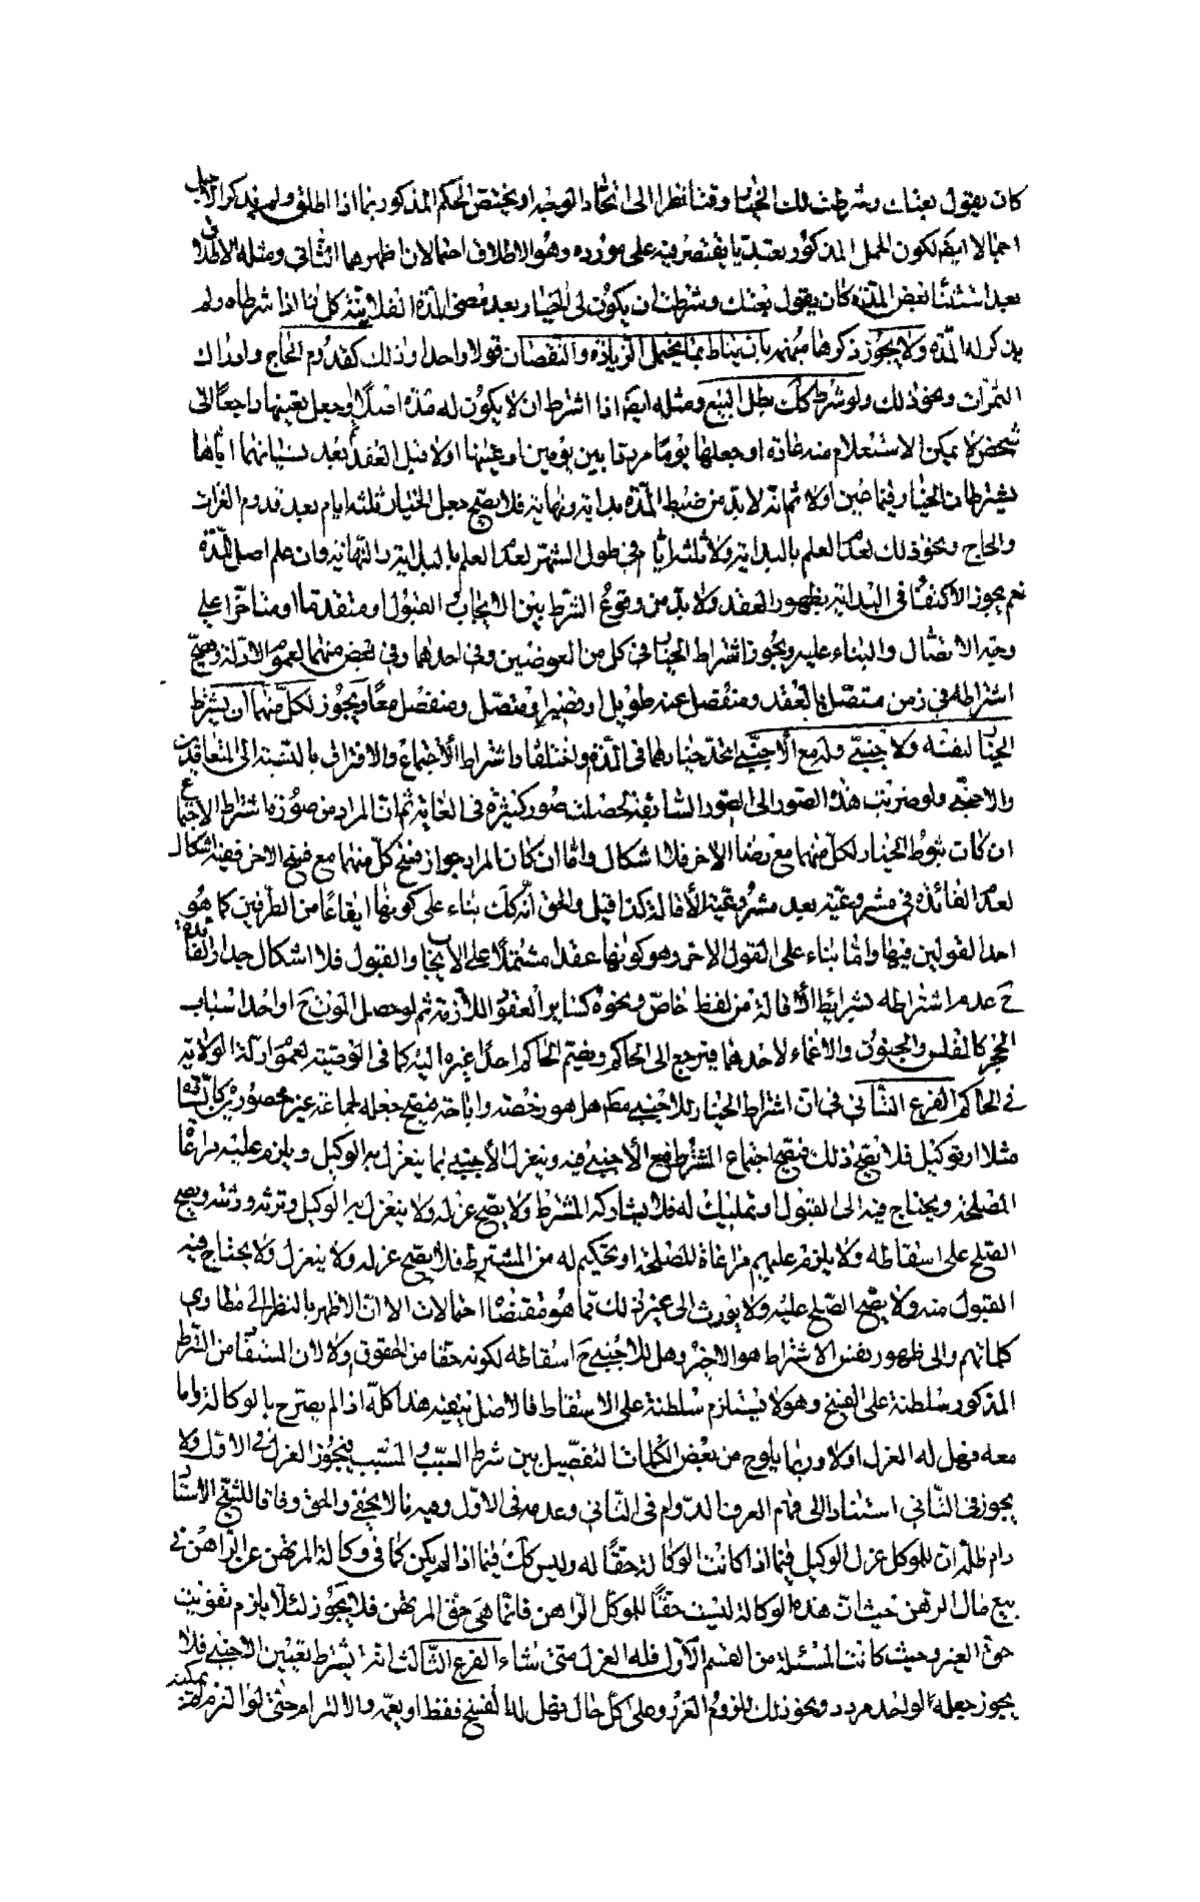 كان يقول بعتك وشرطت لك الخيار وقتا نظرا الى اتحاد الوجه او يختص الحكم المذكور بما اذا اطلق ولم يذكر الاجل
اجمالا ايضا لكون الحمل المذكور تعبديا يقتصر فيه على مورده وهو الاطلاق احتمالان اظهرهما الثاني ومثله الاطلاق
بعد استثناء بعض المدة كان يقول بعتك وشرطت ان يكون لي الخيار بعد مضي المدة الفلانية كل ذا اذا شرطاه ولم
يذكر له المدة ولا يجوز ذكرها مبهمة بان يناط بما يحتمل الزيادة والنقصان قولا واحدا وذلك كقدوم الحاج وادراك
الثمرات ونحو ذلك ولو شرط كك بطل البيع ومثله ايضا اذا اشترط ان لا يكون له مدة اصلا او جعل تعيينها راجعا الى
شخص لا يمكن الاستعلام منه عادة او جعلها يوما مرددا بين يومين او عينها اولا قبل العقد ثم بعد نسيانهما اياها
يشترطان الخيار فيما عين اولا ثم انه لا بد من ضبط المدة بداية ونهاية فلا يصح جعل الخيار ثلثة ايام بعد قدوم الغزات
والحاج ونحو ذلك لعدم العلم بالبداية ولا ثلثة ايام في طول الشهر لعدم العلم بالبداية والنهاية وان علم اصل المدة
نعم يجوز الاكتفاء في البداية بظهور العقد ولا بد من وقوع الشرط بين الايجاب والقبول او متقدما او متاخرا على
وجه الاتصال والبناء عليه ويجوز اشتراط الخيار في كل من العوضين وفي احدهما وفي بعض منهما لعموم الادلة ويصح
اشتراطه في زمن متصل بالعقد ومنفصل عنه طويل او قصير او متصل ومنفصل معا ويجوز لكل منهما ان يشترط
الخيار لنفسه ولاجنبي وله مع الاجنبي اتحد خيارهما في المدة او اختلفا واشتراط الاجتماع والافتراق بالنسبة الى المتعاقدين
والاجنبي ولو ضربت هذه الصور الى الصور السابقة لحصلت صور كثيرة في الغاية ثم ان المراد من صورة اشتراط الاجتماع
ان كان ثبوت الخيار لكل منهما مع رضا الاخر فلا اشكال واما ان كان المراد جواز فسخ كل منهما مع فسخ الاخر ففيه اشكال
لعدم الفائدة في مشروعيته بعد مشروعية الاقالة كذا قيل والحق انه كك بناء على كونها ايقاعا من الطرفين كما هو
احد القولين فيها واما بناء على القول الاخر وهو كونها عقدا مشتملا على الايجاب والقبول فلا اشكال جدا والفائدة
ح عدم اشتراطه بشرايط الاقالة من لفظ خاص ونحوه كساير العقود اللازمة ثم لو حصل الموت ح او احد اسباب
الحجر كالفلس والجنون والاغماء لاحدهما فيرجع الى الحاكم ويضم الحاكم احدا غيره اليه كما في الوصية لعموم ادلة الولاية
في الحاكم الفرع الثاني في ان اشتراط الخيار للاجنبي مط هل هو رخصة واباحة فيصح جعله لجماعة غير محصورين
مثلا او توكيل فلا يصح ذلك فيصح اجتماع المشترط مع الاجنبي فيه وينعزل الاجنبي بما ينعزل به الوكيل ويلزم عليه مراعات
المصلحة ويحتاج فيه الى القبول او تمليك له فلا يشاركه المشترط ولا يصح عزله ولا ينعزل به الوكيل وترثه ورثته ويصح
الصلح على اسقاطه ولا يلزم عليهم مراعاة المصلحة او تحكيم له من المشترط فلا يصح عزله ولا ينعزل ولا يحتاج فيه
القبول منه ولا يصح الصلح عليه ولا يورث الى غير ذلك مما هو مقتضاها احتمالات الا ان الاظهر بالنظر الى مطاوي
كلماتهم والى ظهور نفس الاشتراط هو الاخير وهل للاجنبي ح اسقاطه لكونه حقا من الحقوق ولا لان المستفاد من الشرط
المذكور سلطنة على الفسخ وهو لا يستلزم سلطنة على الاسقاط فالاصل ينفيه هذا كله اذا لم يصرح بالوكالة واما
معه فهل له العزل او لا وربما يلوح من بعض الكلمات التفصيل بين شرط السبب والمسبب فيجوز العزل في الاول ولا
يجوز في الثاني استنادا الى فهم العرف الدوام في الثاني وعدمه في الاول وفيه ما لا يخفى والحق وفاقا للشيخ الاستاد
دام ظله ان للموكل عزل الوكيل فيما اذا كانت الوكالة حقا له وليس كك فيما اذا لم يكن كما في وكالة المرتهن عن الراهن في
بيع مال الرهن حيث ان هذه الوكالة ليست حقا للموكل الراهن فانما هي حق المرتهن فلا يجوز لئلا يلزم تفويت
حق الغير وحيث كانت المسئلة من القسم الاول فله العزل متى شاء الفرع الثالث انه يشترط تعيين الاجنبي فلا
يجوز جعله لواحد مردد ونحو ذلك للزوم الغرر وعلى كل حال فهل له الفسخ فقط او يعمه والالتزام حتى لو التزم